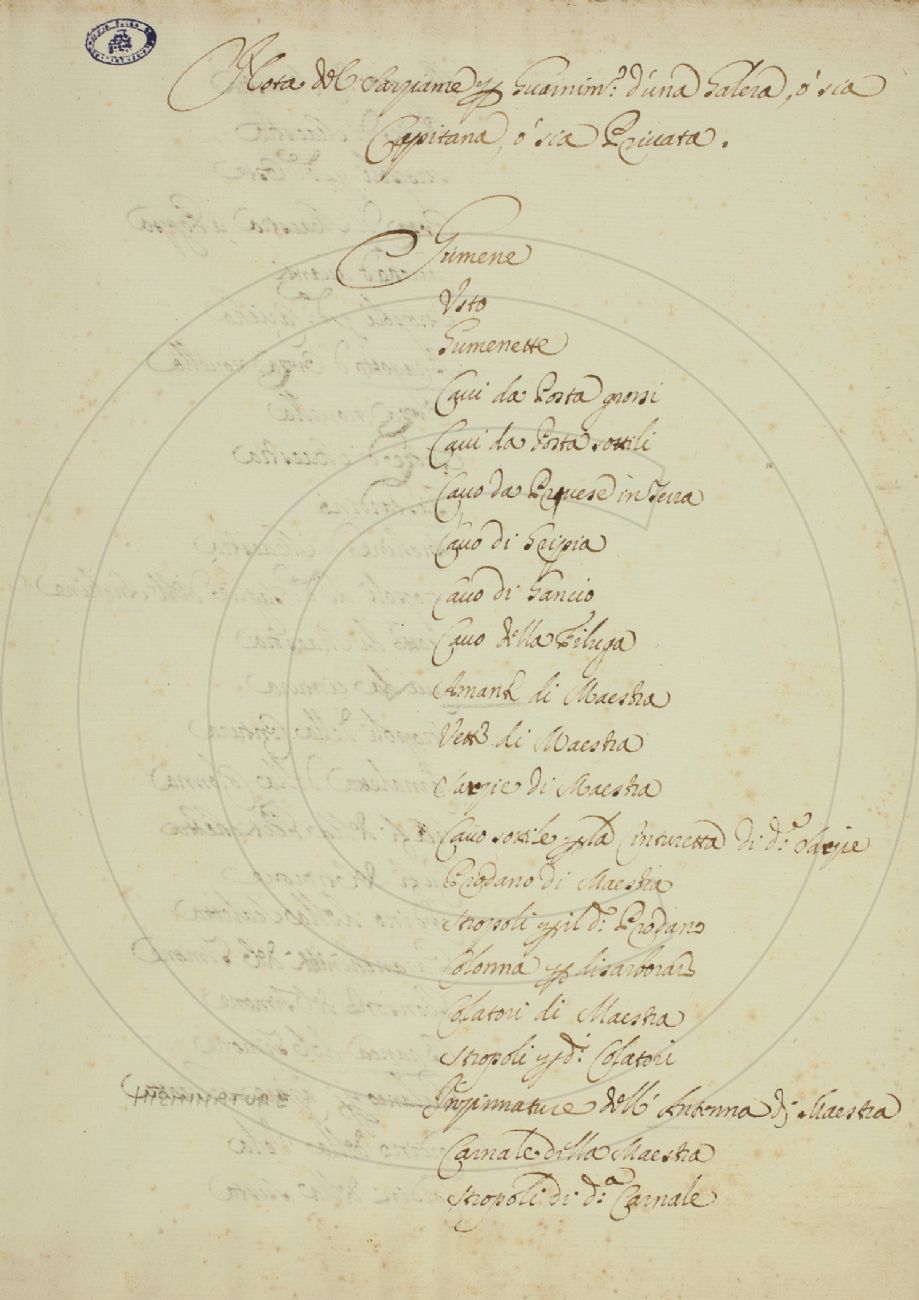 Nota del Sarziame p Guarnim.º d'una Galera, ó sia
Capitana, ó sia Privata.
Gumene
Usto
Gumenette
Cavi da Posta grossi
Cavi da Posta sottili
Cavo da Provese in Terra
Cavo di Grippia
Cavo di Gancio
Cavo della Filuga
Amanti di Maestra
Vette di Maestra
Sarzie di Maestra
Cavo sottile p la Cinturetta di d.e Sarzie
Prodano di Maestra
Stropoli p il d.º Prodano
Colonna p disarborare
Colatori di Maestra
Stropoli p d.i Colatori
Inginnature dell'Antenna di Maestra
Carnale della Maestra
Stropoli di d.º Carnale